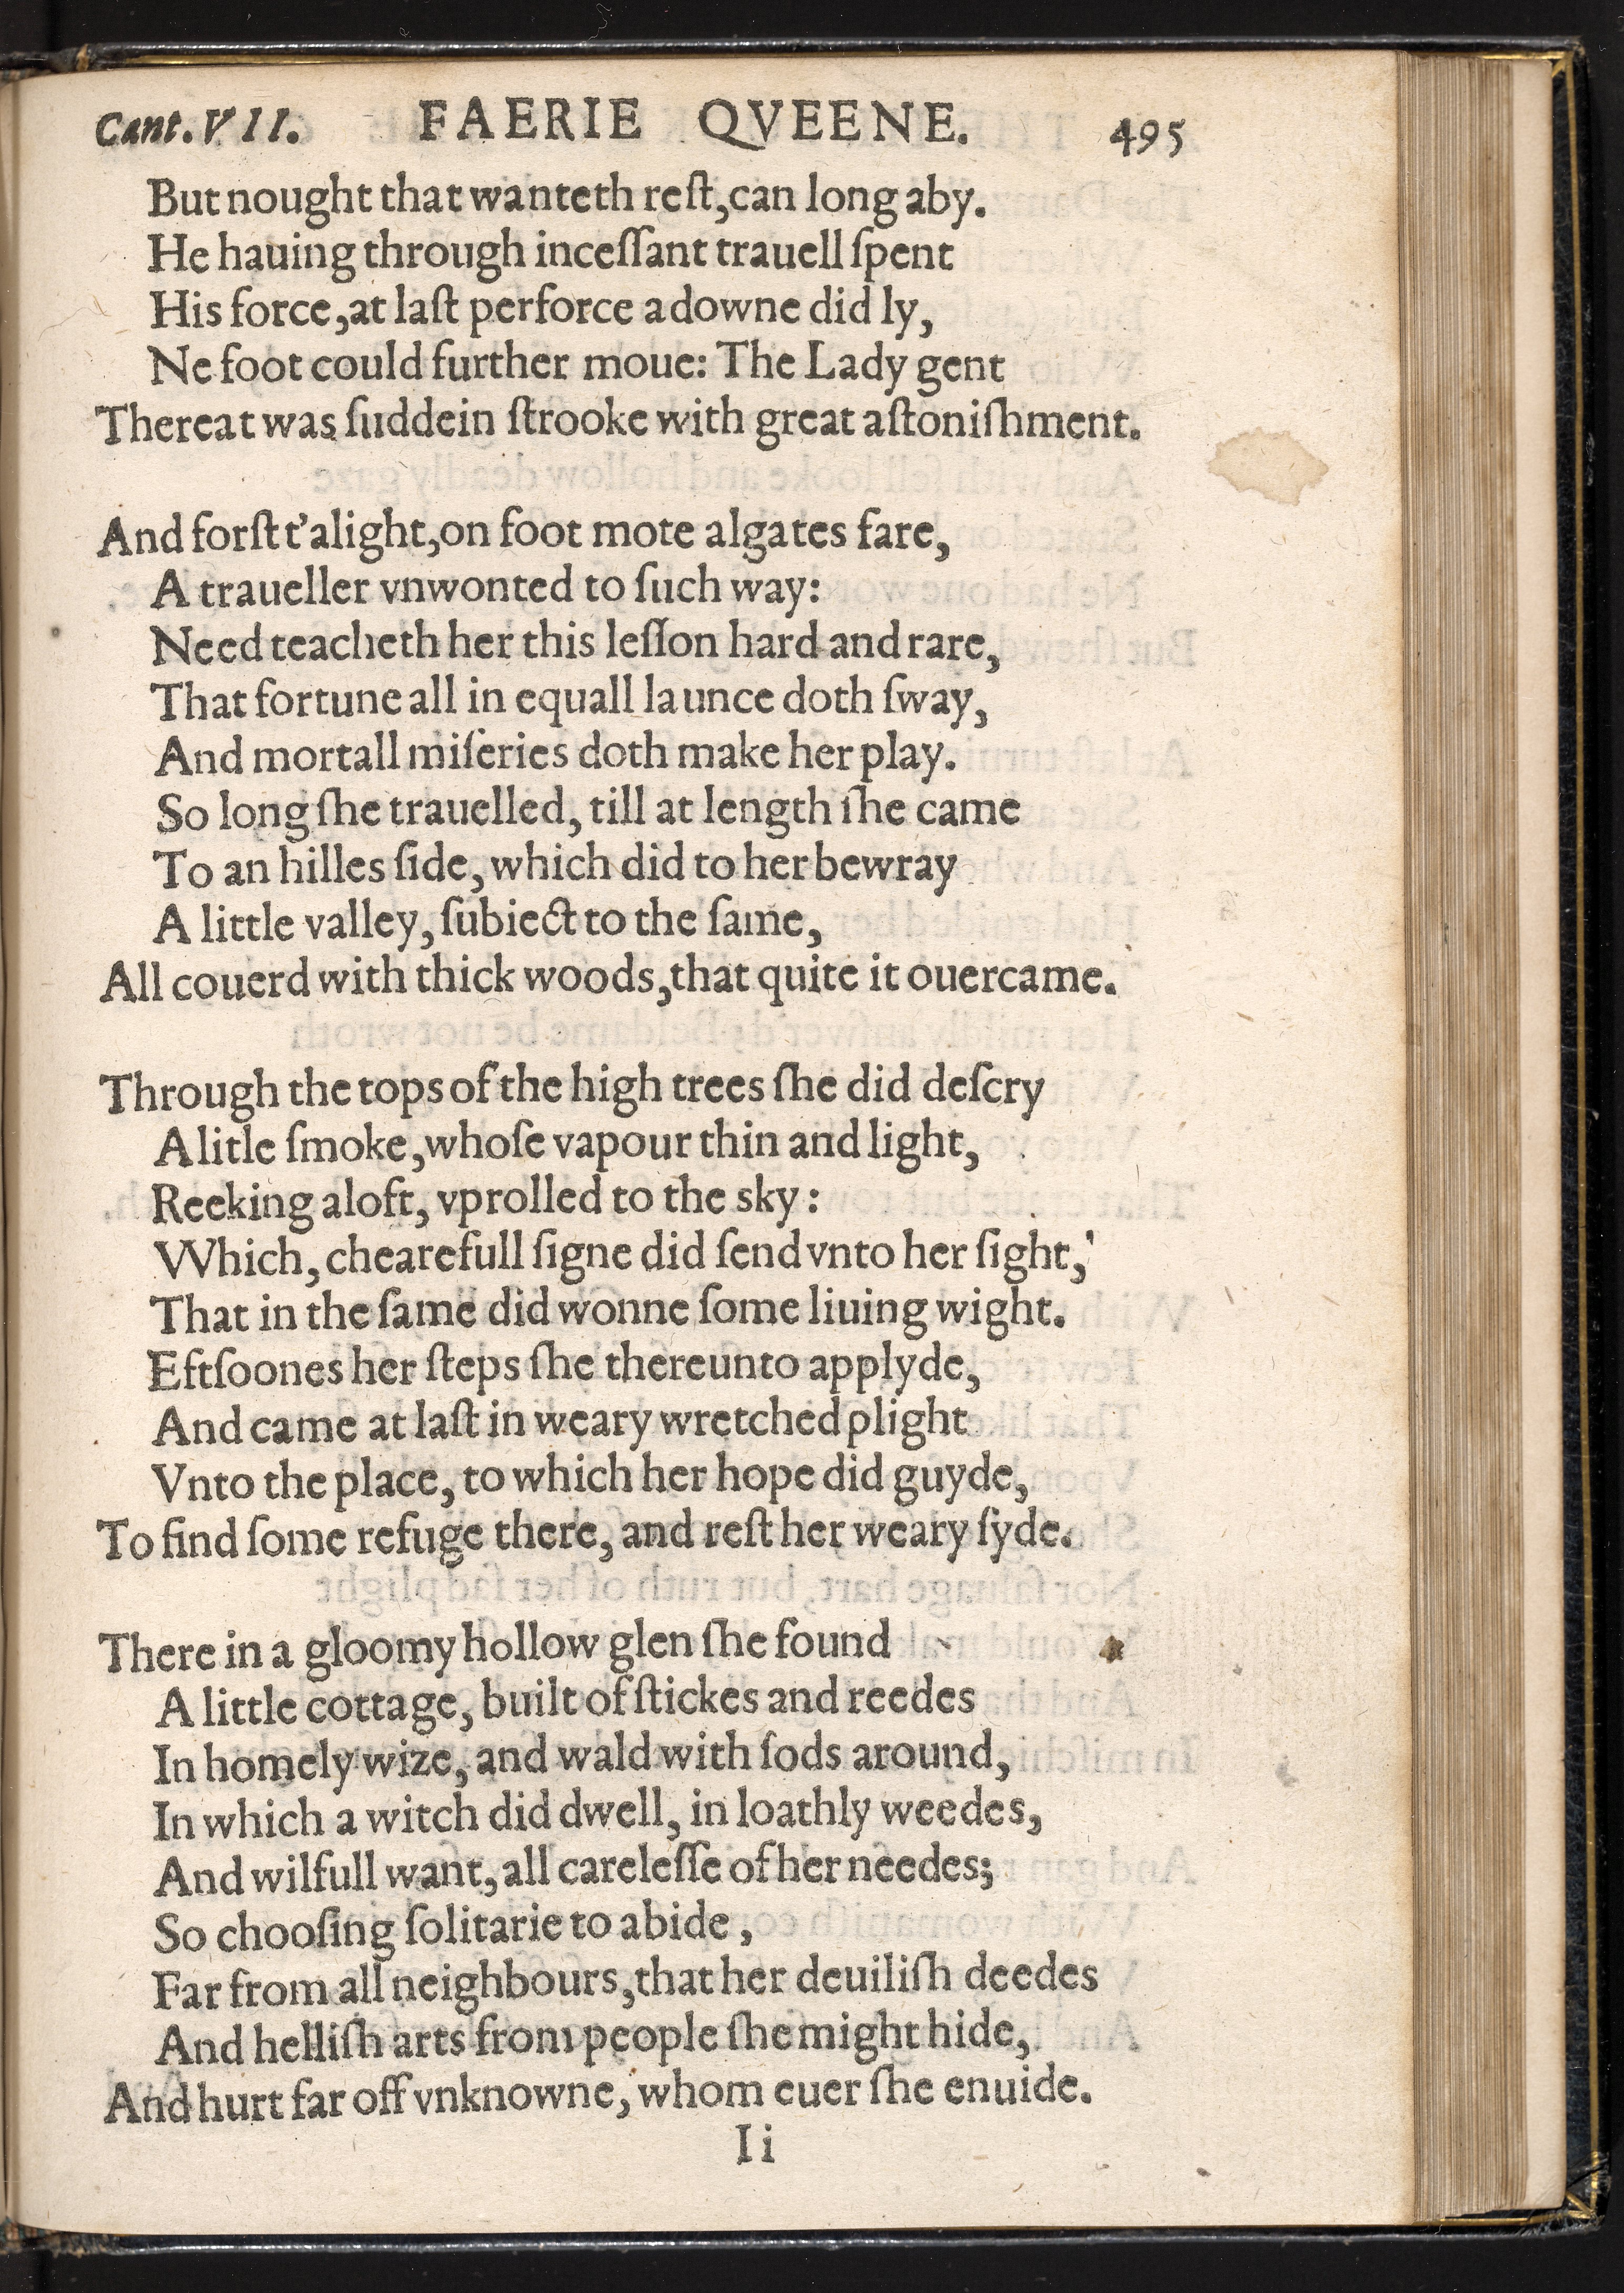 Cant. VII. FAERIE QVEENE. 495
But nought that wanteth reſt, can long aby.
He hauing through inceſſant trauell ſpent
His force, at laſt perforce adowne did ly,
Ne foot could further moue: The Lady gent
Thereat was ſuddein ſtrooke with great aſtoniſhment.
And forſt t'alight, on foot mote algates fare,
A traueller vnwonted to ſuch way:
Need teacheth her this leſſon hard and rare,
That fortune all in equall launce doth ſway,
And mortall miſeries doth make her play.
So long ſhe trauelled, till at length ſhe came
To an hilles ſide, which did to her bewray
A little valley, ſubiect to the ſame,
All couerd with thick woods, that quite it ouercame.
Through the tops of the high trees ſhe did deſcry
A litle ſmoke, whoſe vapour thin and light,
Reeking aloft, vprolled to the sky:
VVhich, chearefull ſigne did ſend vnto her ſight,
That in the ſame did wonne ſome liuing wight.
Eftſoones her ſteps ſhe thereunto applyde,
And came at laſt in weary wretched plight
Vnto the place, to which her hope did guyde,
To find ſome refuge there, and reſt her weary ſyde.
There in a gloomy hollow glen ſhe found
A little cottage, built of ſtickes and reedes
In homely wize, and wald with ſods around,
In which a witch did dwell, in loathly weedes,
And wilfull want, all careleſſe of her needes;
So chooſing ſolitarie to abide,
Far from all neighbours, that her deuiliſh deedes
And helliſh arts from people ſhe might hide,
And hurt far off vnknowne, whom euer ſhe enuide.
Ii